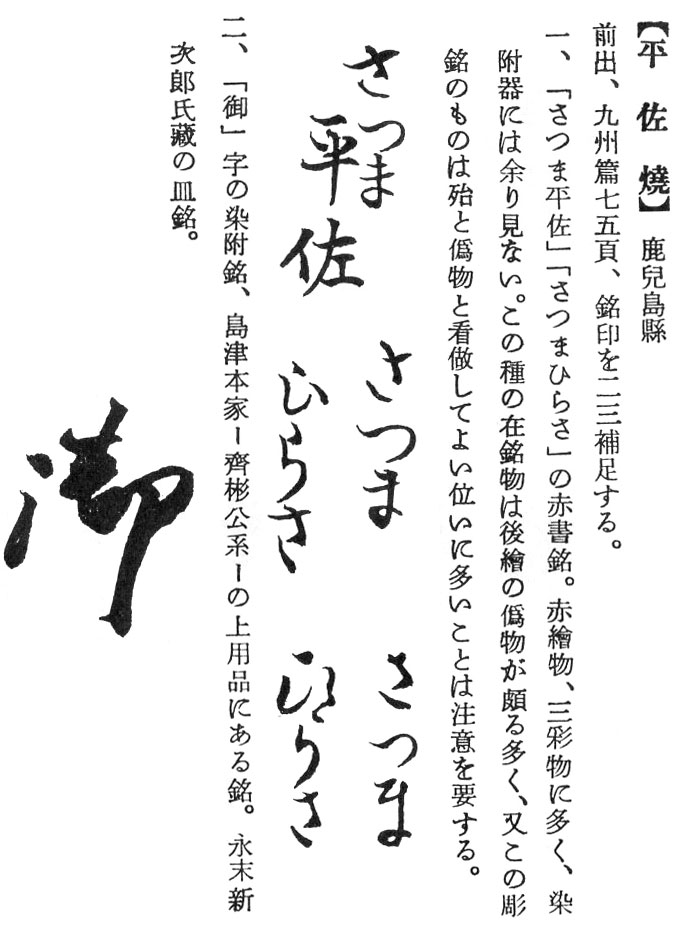 【平佐燒】 鹿兒島縣
前出、九州篇七五頁、銘印を二三補足する。
一、「さつま平佐」「さつまひらさ」の赤書銘。赤繪物、三彩物に多く、染
附器には余り見ない。この種の在銘物は後繪の僞物が頗る多く、又この彫
銘のものは殆と僞物と看做してよい位いに多いことは注意を要する。
さつま
平佐
さつま
ひらさ
さつま
ひらさ
二、「御」字の染附銘、島津本家ー齊彬公系ーの上用品にある銘。永末新
次郎氏藏の皿銘。
御